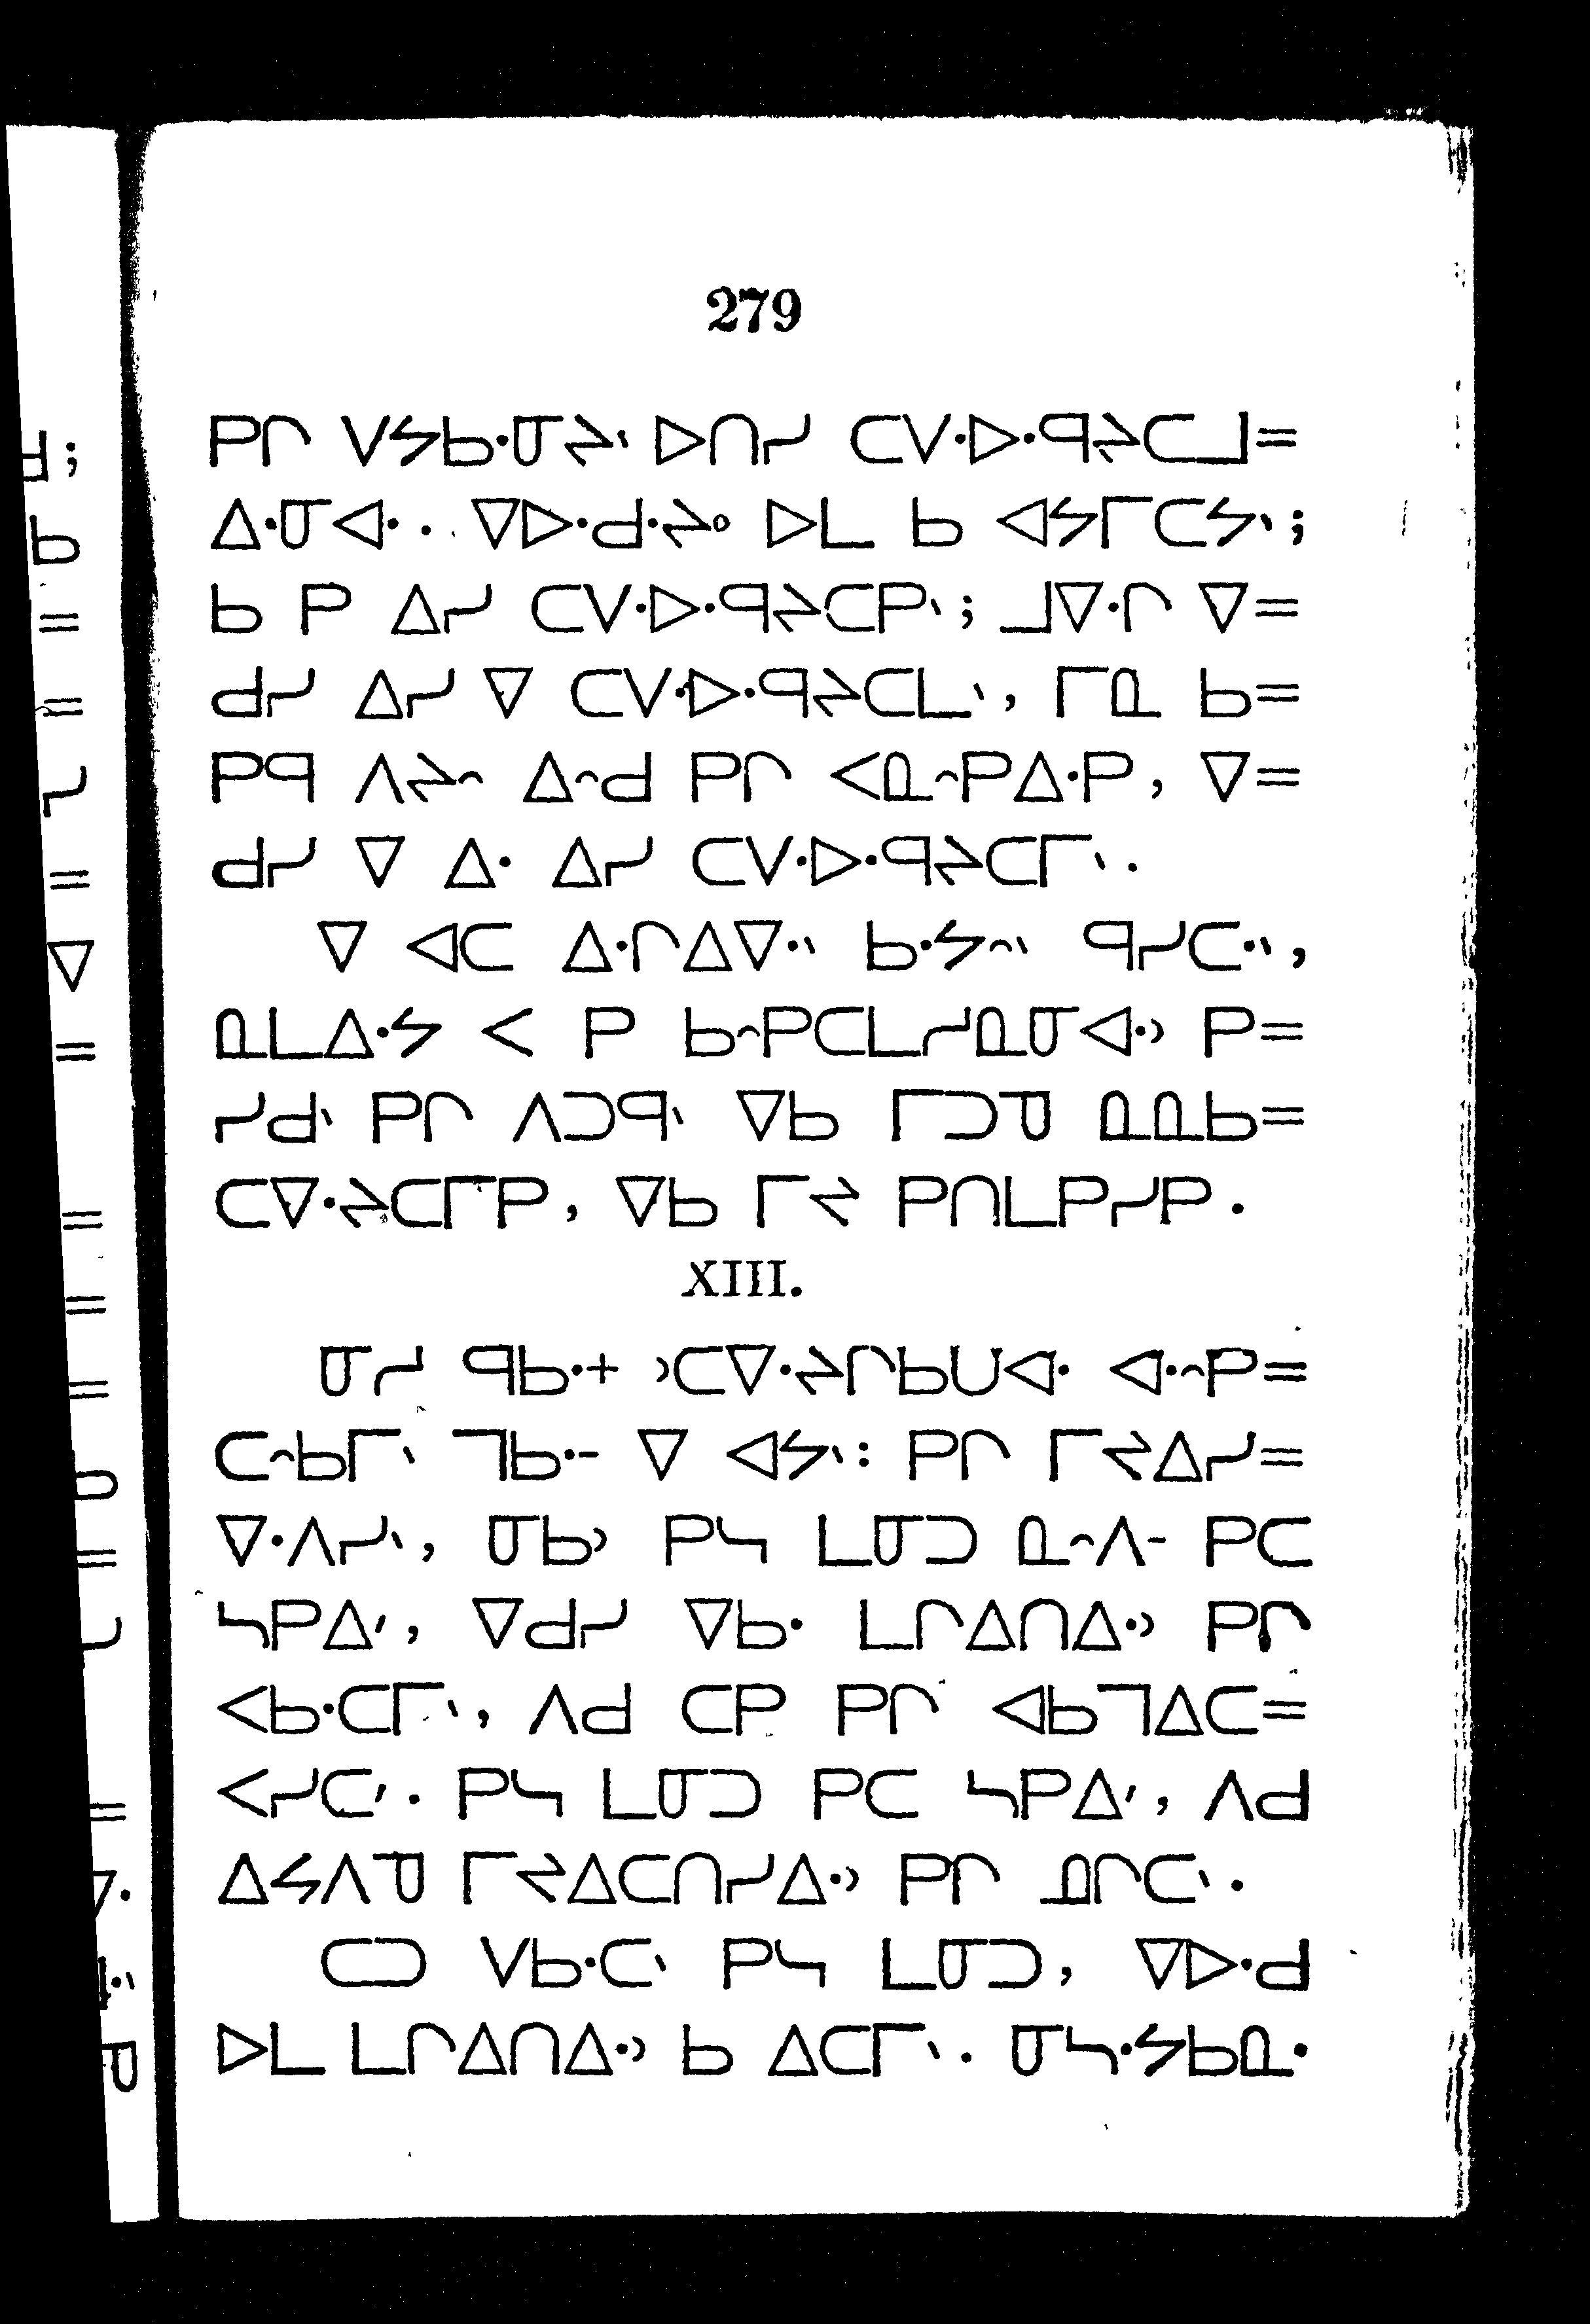 279
ᑭᒋ ᐯᔭᑲᐧᓂᔨᐠ ᐅᑎᓯ ᑕᐯᐧᐅᐧᑫᔨᑕᒧ=
ᐃᐧᓂᐊᐧ. ᐁᐅᐧᑯᐧᔨᐤ ᐅᒪ ᑲ ᐊᔭᒥᑕᔭᐠ;
ᑲ ᑭ ᐃᓯ ᑕᐯᐧᐅᐧᑫᔨᑕᑭᐠ; ᒧᐁᐧᒋ ᐁ=
ᑯᓯ ᐃᓯ ᐁ ᑕᐯᐧᐅᐧᑫᔨᑕᒪᐠ, ᒥᓇ ᑲ=
ᑭᑫ ᐱᔨᐢ ᐃᐢᑯ ᑭᒋ ᐸᓇᐢᑭᐃᐧᑭ, ᐁ=
ᑯᓯ ᐁ ᐃᐧ ᐃᓯ ᑕᐯᐧᐅᐧᑫᔨᑕᒥᐠ.
ᐁ ᐊᑕ ᐃᐧᒋᐃᐁᐧᐠ ᑲᐧᔭᐢᐠ ᑫᓯᑕᐧᐠ,
ᓇᒪᐃᐧᔭ ᐸ ᑭ ᑲᐢᑭᑕᒪᓯᓇᓂᐊᐧᐣ ᑭ=
ᓯᑯᐠ ᑭᒋ ᐱᑐᑫᐠ ᐁᑲ ᒥᑐᓀ ᓇᓇᑲ=
ᑕᐁᐧᔨᑕᒥᑭ, ᐁᑲ ᒥᔪ ᑭᑎᒪᑭᓯᑭ.
XIII.
ᓂᓯ ᑫᑲᐧᕀ ᐣᑕᐁᐧᔨᒋᑲᑌᐊᐧ ᐊᐧᐢᑭ=
ᑕᐢᑲᒥᐠ ᒣᑲᐧᐨ ᐁ ᐊᔭᐠ: ᑭᒋ ᒥᔪᐃᓯ=
ᐁᐧᐱᓯᐠ, ᓂᑲᐣ ᑭᓭ ᒪᓂᑐ ᓇᐢᐱᐨ ᑭᑕ
ᓭᑭᐃᐟ, ᐁᑯᓯ ᐁᑲᐧ ᒪᒋᐃᑎᐃᐧᐣ ᑭᒋ
ᐸᑲᐧᑕᒥᐠ, ᐱᑯ ᑕᑭ ᑭᒋ ᐊᑲᒣᐃᑕ=
ᐸᓯᑕᐟ. ᑭᓭ ᒪᓂᑐ ᑭᑕ ᓭᑭᐃᐟ, ᐱᑯ
ᐃᔭᐱᓀ ᒥᔪᐃᑕᑎᓯᐃᐧᐣ ᑭᒋ ᓄᒋᑕᐠ.
ᑕᑐ ᐯᑲᐧᑕᐠ ᑭᓭ ᒪᓂᑐ, ᐁᐅᐧᑯ
ᐅᒪ ᒪᒋᐃᑎᐃᐧᐣ ᑲ ᐃᑕᒥᐠ. ᓂᓭᐧᔭᑲᓇᐧ